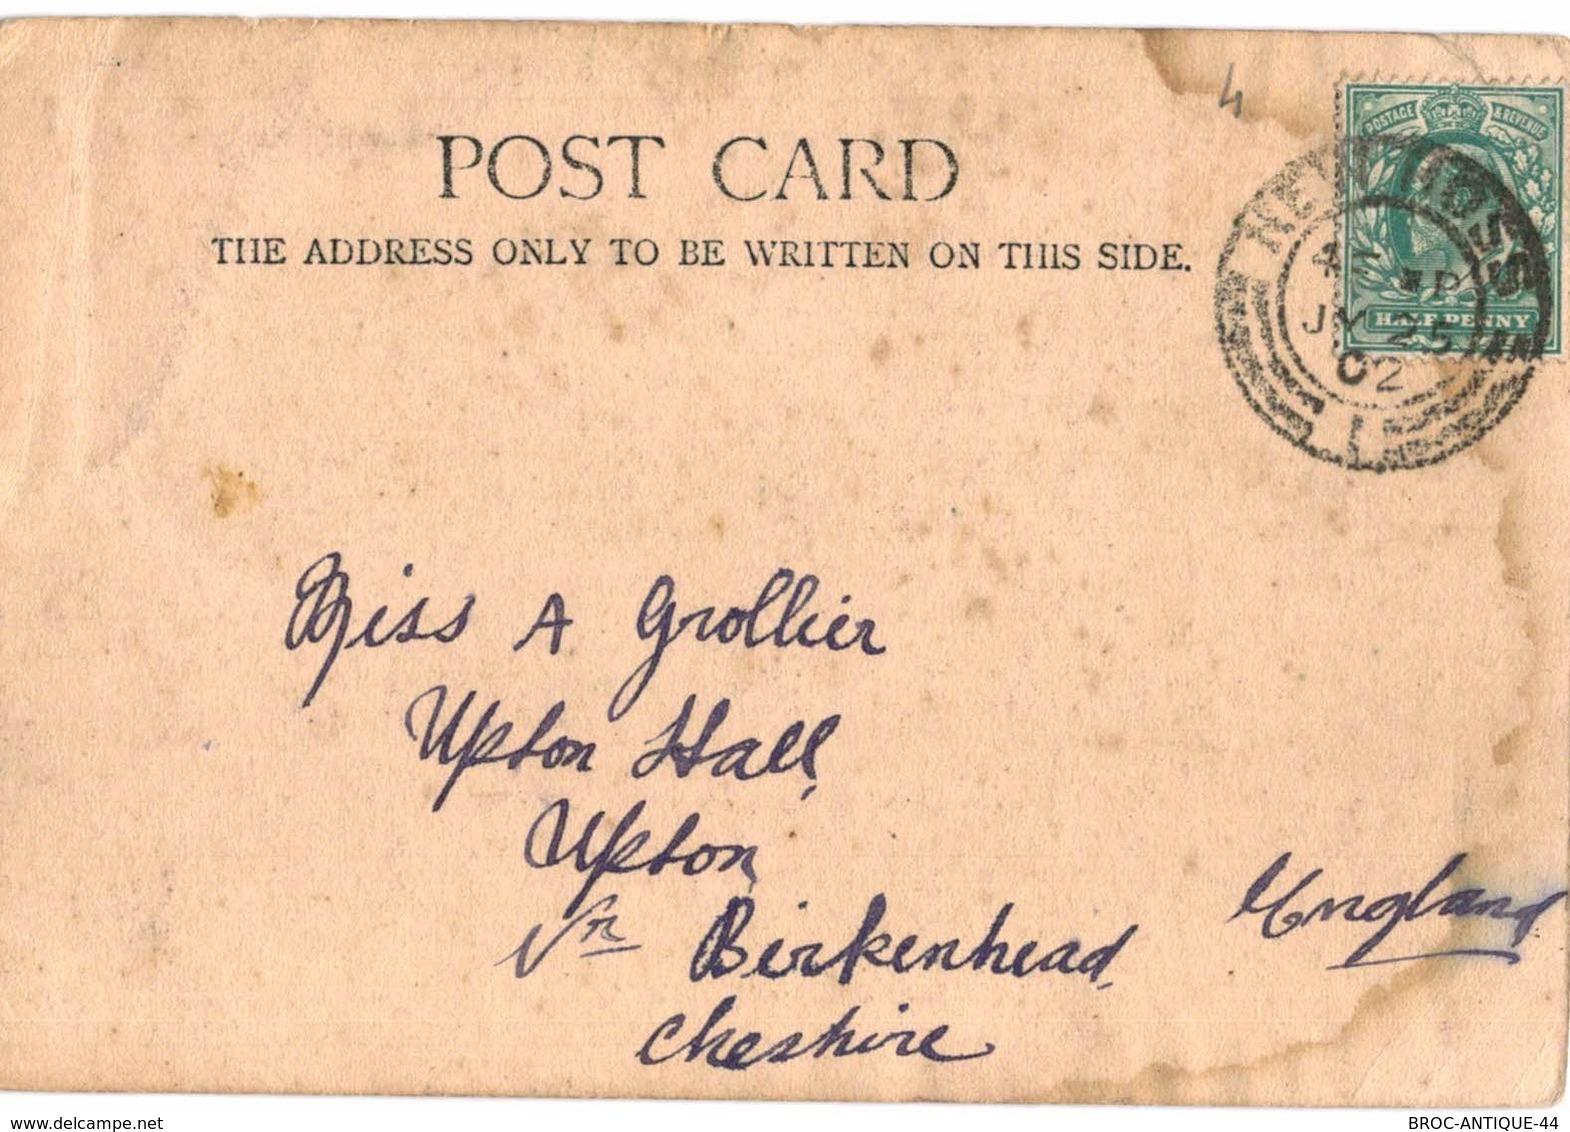 4
POSTAGE & REVENUE
POST CARD
THE ADDRESS ONLY TO BE WRITTEN ON THIS SIDE.
JY 25
02
HALF PENNY
Miss A Grollier
Upton Hall,
Upton,
Nr Birkenhead,
Cheshire
England
www.delcampe.net
BROC-ANTIQUE-44